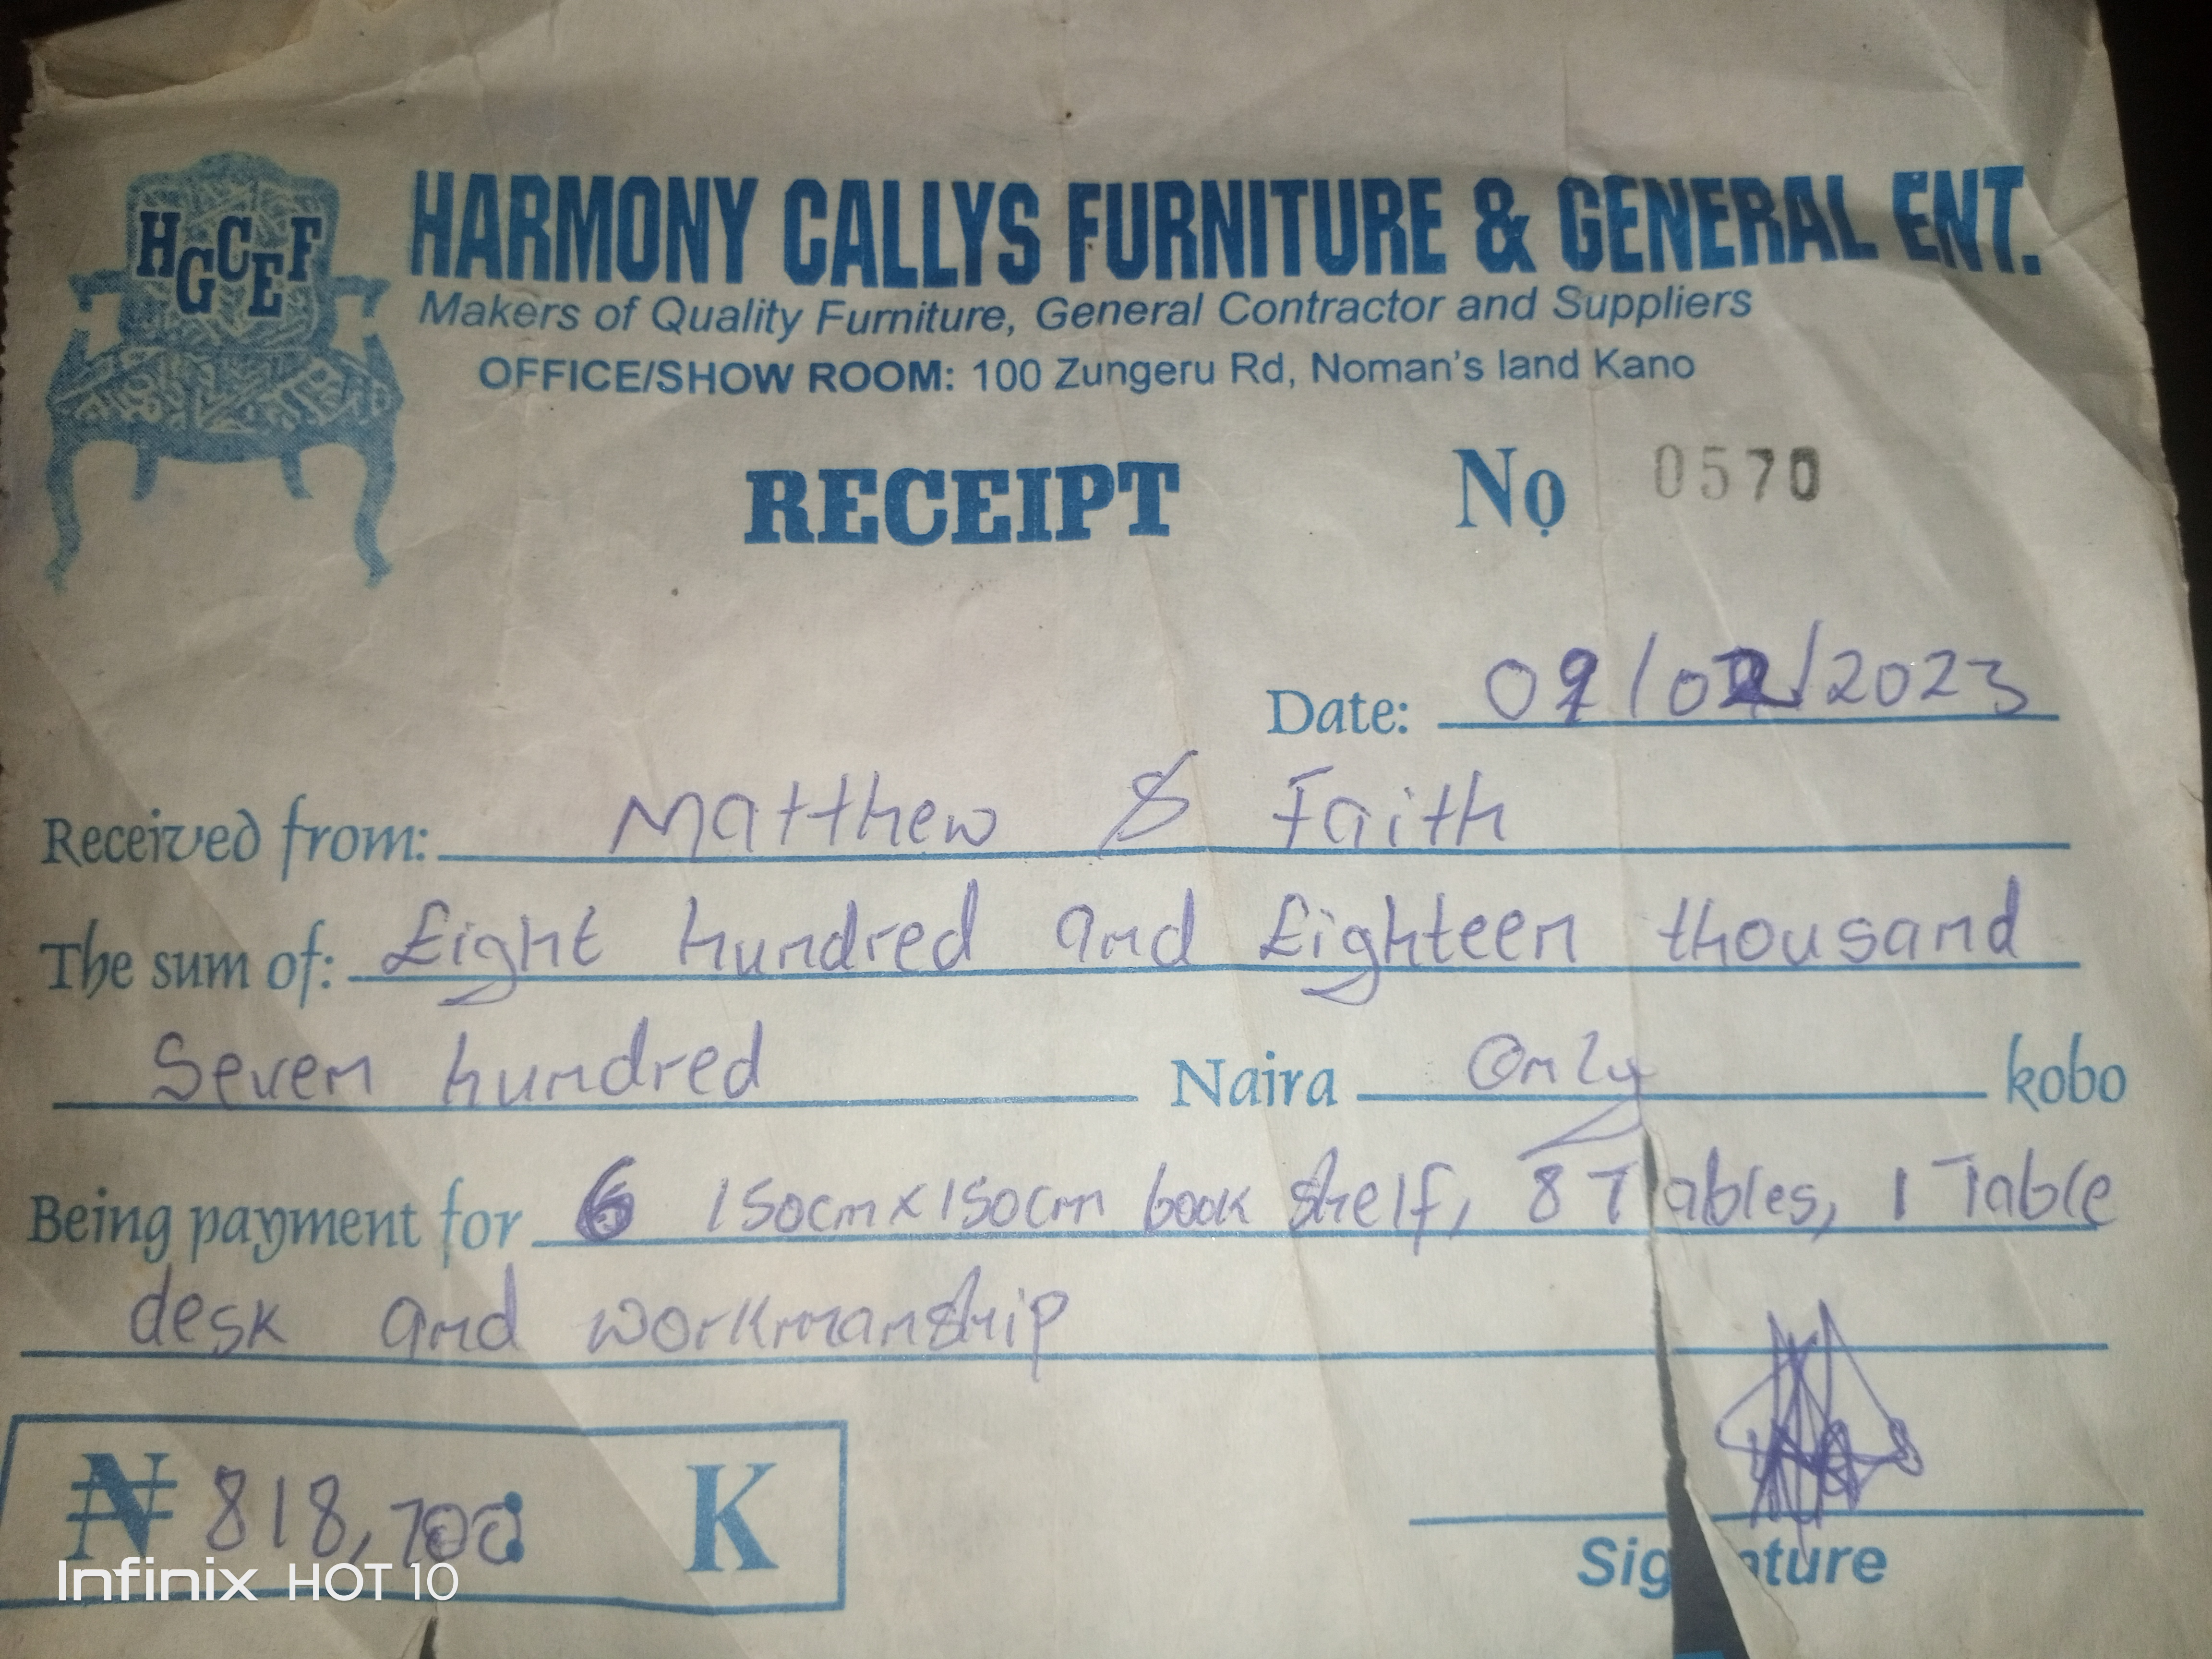 HGCEF
HARMONY CALLYS FURNITURE & GENERAL ENT.
Makers of Quality Furniture, General Contractor and Suppliers
OFFICE/SHOW ROOM: 100 Zungeru Rd, Noman's land Kano
RECEIPT Nọ 0570
Date: /2023
Received from: Matthew & Faith
The sum of: Eight hundred and Eighteen thousand
Seven hundred Naira Only kobo
Being payment for 6 150cm x 150cm book shelf, 8 Tables, 1 Table
desk and workmanship
₦ 818,700 K
Signature
Infinix HOT 10